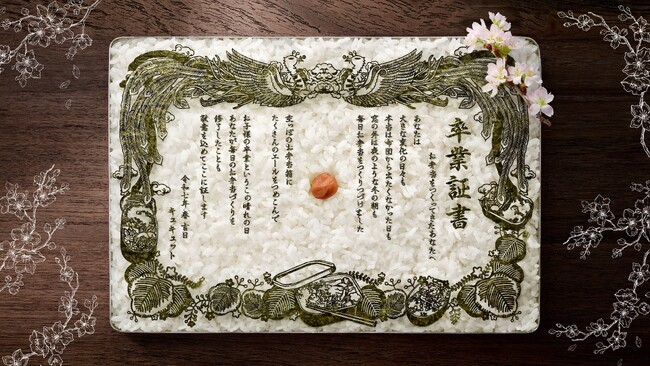 卒業証書
お弁当をつくってきたあなたへ
あなたは
大きな変化の日々も
本当は布団から出たくなかった日も
窓の外は夜のような冬の朝も
毎日お弁当をつくりつづけました
空っぽのお弁当箱に
たくさんのエールをつめこんで
お子様の卒業というこの晴れの日
あなたが毎日のお弁当づくりを
修了したことも
敬意を込めてここに証します
令和七年 春吉日
キュキュット